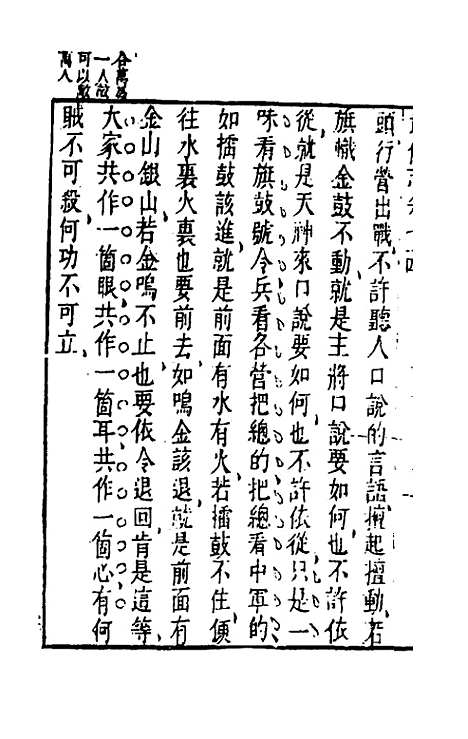 頭行營出戰不許聽人口說的言語擅起擅動若
旗幟金鼓不動就是主將口說要如何也不許依
從就是天神來口說要如何也不許依從只是一
味看旗鼓號令兵看各營把總的把總看中軍的
如擂鼓該進就是前面有水有火若擂鼓不住便
往水裏火裏也要前去如鳴金該退就是前面有
金山銀山若金鳴不止也要依令退回肯是這等
大家共作一箇眼共作一箇耳共作一箇心有何
賊不可殺何功不可立
合萬爲
一人故
可以敵
萬人